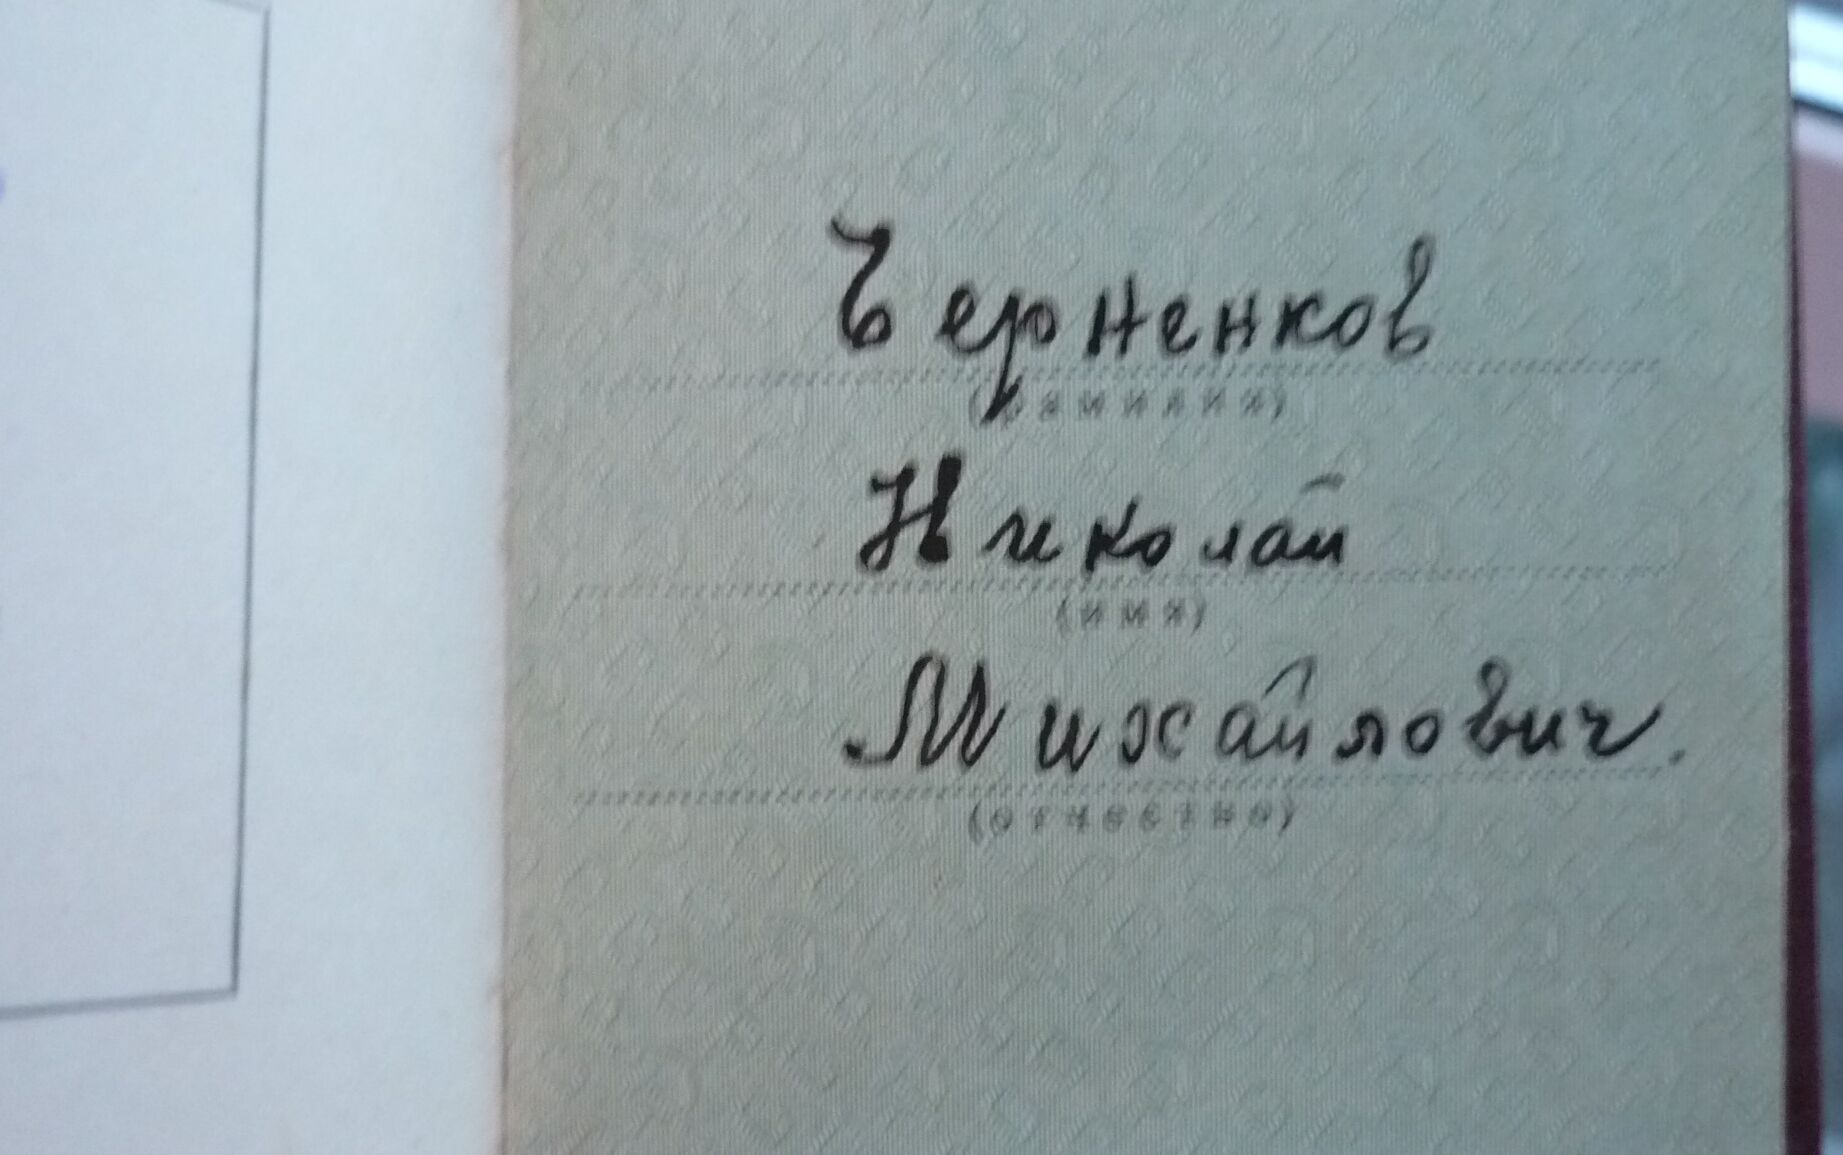 Черненков
(фамилия)
Николай
(имя)
Михайлович.
(отчество)